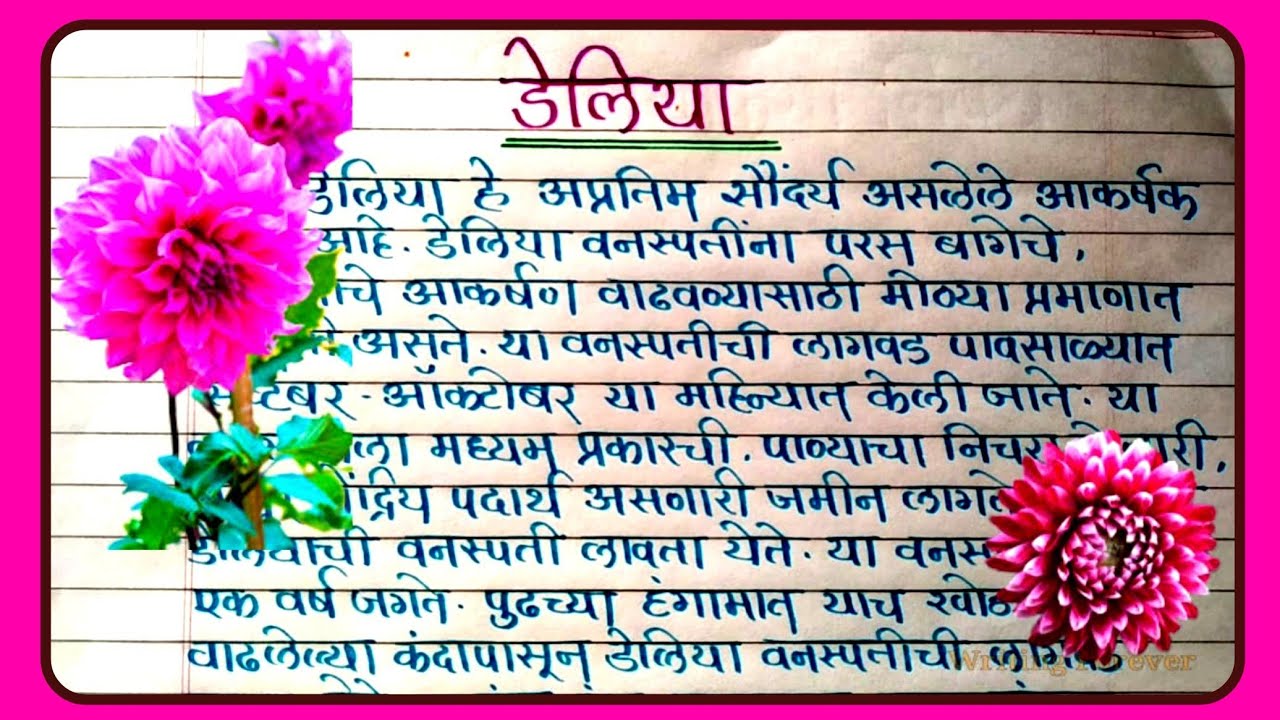 डेलिया
डेलिया हे अप्रतिम सौंदर्य असलेले आकर्षक
आहे. डेलिया वनस्पतींना परस बागेचे,
चे आकर्षण वाढवण्यासाठी मोठ्या प्रमाणात
असते. या वनस्पतीची लागवड पावसाळ्यात
सप्टेंबर - ऑक्टोबर या महिन्यात केली जाते. या
ला मध्यम प्रकारची. पाण्याचा निचरा
सेंद्रिय पदार्थ असणारी जमीन लागते
डेलियाची वनस्पती लावता येते. या
एक वर्ष जगते. पुढच्या हंगामात याच
वाढलेल्या कंदापासून डेलिया वनस्पतीची
Writing Forever